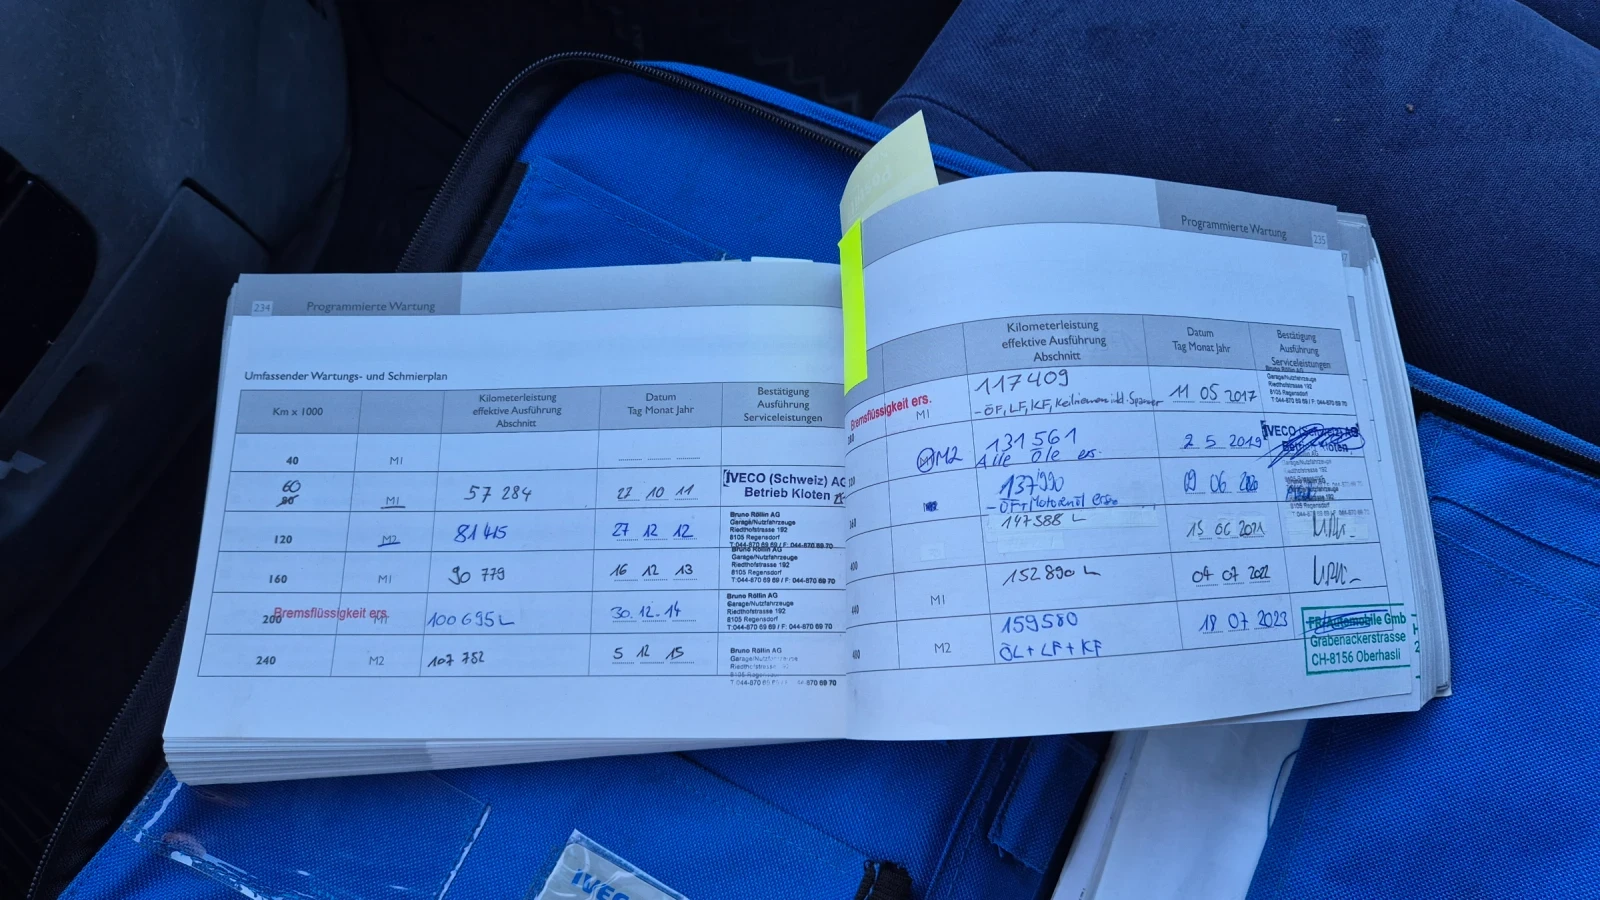 234 Programmierte Wartung
Umfassender Wartungs- und Schmierplan
Km x 1000
Kilometerleistung
effektive Ausführung
Abschnitt
Datum
Tag Monat Jahr
Bestätigung
Ausführung
Serviceleistungen
40 M1
60 80 M1 57 284 27 10 11
IVECO (Schweiz) AG
Betrieb Kloten
120 M2 81415 27 12 12
Bruno Röllin AG
Garage/Nutzfahrzeuge
Riedthofstrasse 192
8105 Regensdorf
T:044-870 69 69 / F: 044-870 69 70
160 M1 90 779 16 12 13
Bruno Röllin AG
Garage/Nutzfahrzeuge
Riedthofstrasse 192
8105 Regensdorf
T:044-870 69 69 / F: 044-870 69 70
200 Bremsflüssigkeit ers. M1 100 695 L 30. 12. 14
Bruno Röllin AG
Garage/Nutzfahrzeuge
Riedthofstrasse 192
8105 Regensdorf
T:044-870 69 69 / F: 044-870 69 70
240 M2 107 752 5 12 15
Bruno Röllin AG
Garage/Nutzfahrzeuge
Riedthofstrasse 192
8105 Regensdorf
Programmierte Wartung 235
Kilometerleistung
effektive Ausführung
Abschnitt
Datum
Tag Monat Jahr
Bestätigung
Ausführung
Serviceleistungen
Bremsflüssigkeit ers.
M1
117409
- ÖF, LF, KF, Keilriemen inkl. Spanner
11 05 2017
Bruno Röllin AG
Garage/Nutzfahrzeuge
Riedthofstrasse 192
8105 Regensdorf
T: 044-870 69 69 / F: 044-870 69 70
M2
131 561
Alle Öle ers.
2 5 2019
IVECO (Schweiz) AG
Betrieb Kloten
137990
- ÖF + Motorenöl
09 06 2020
147388 L
15 06 2021
M1
152 890 L
04 07 2022
M2
159580
ÖL + LF + KF
18 07 2023
FB Automobile Gmb
Grabenackerstrasse
CH-8156 Oberhasli
IVECO